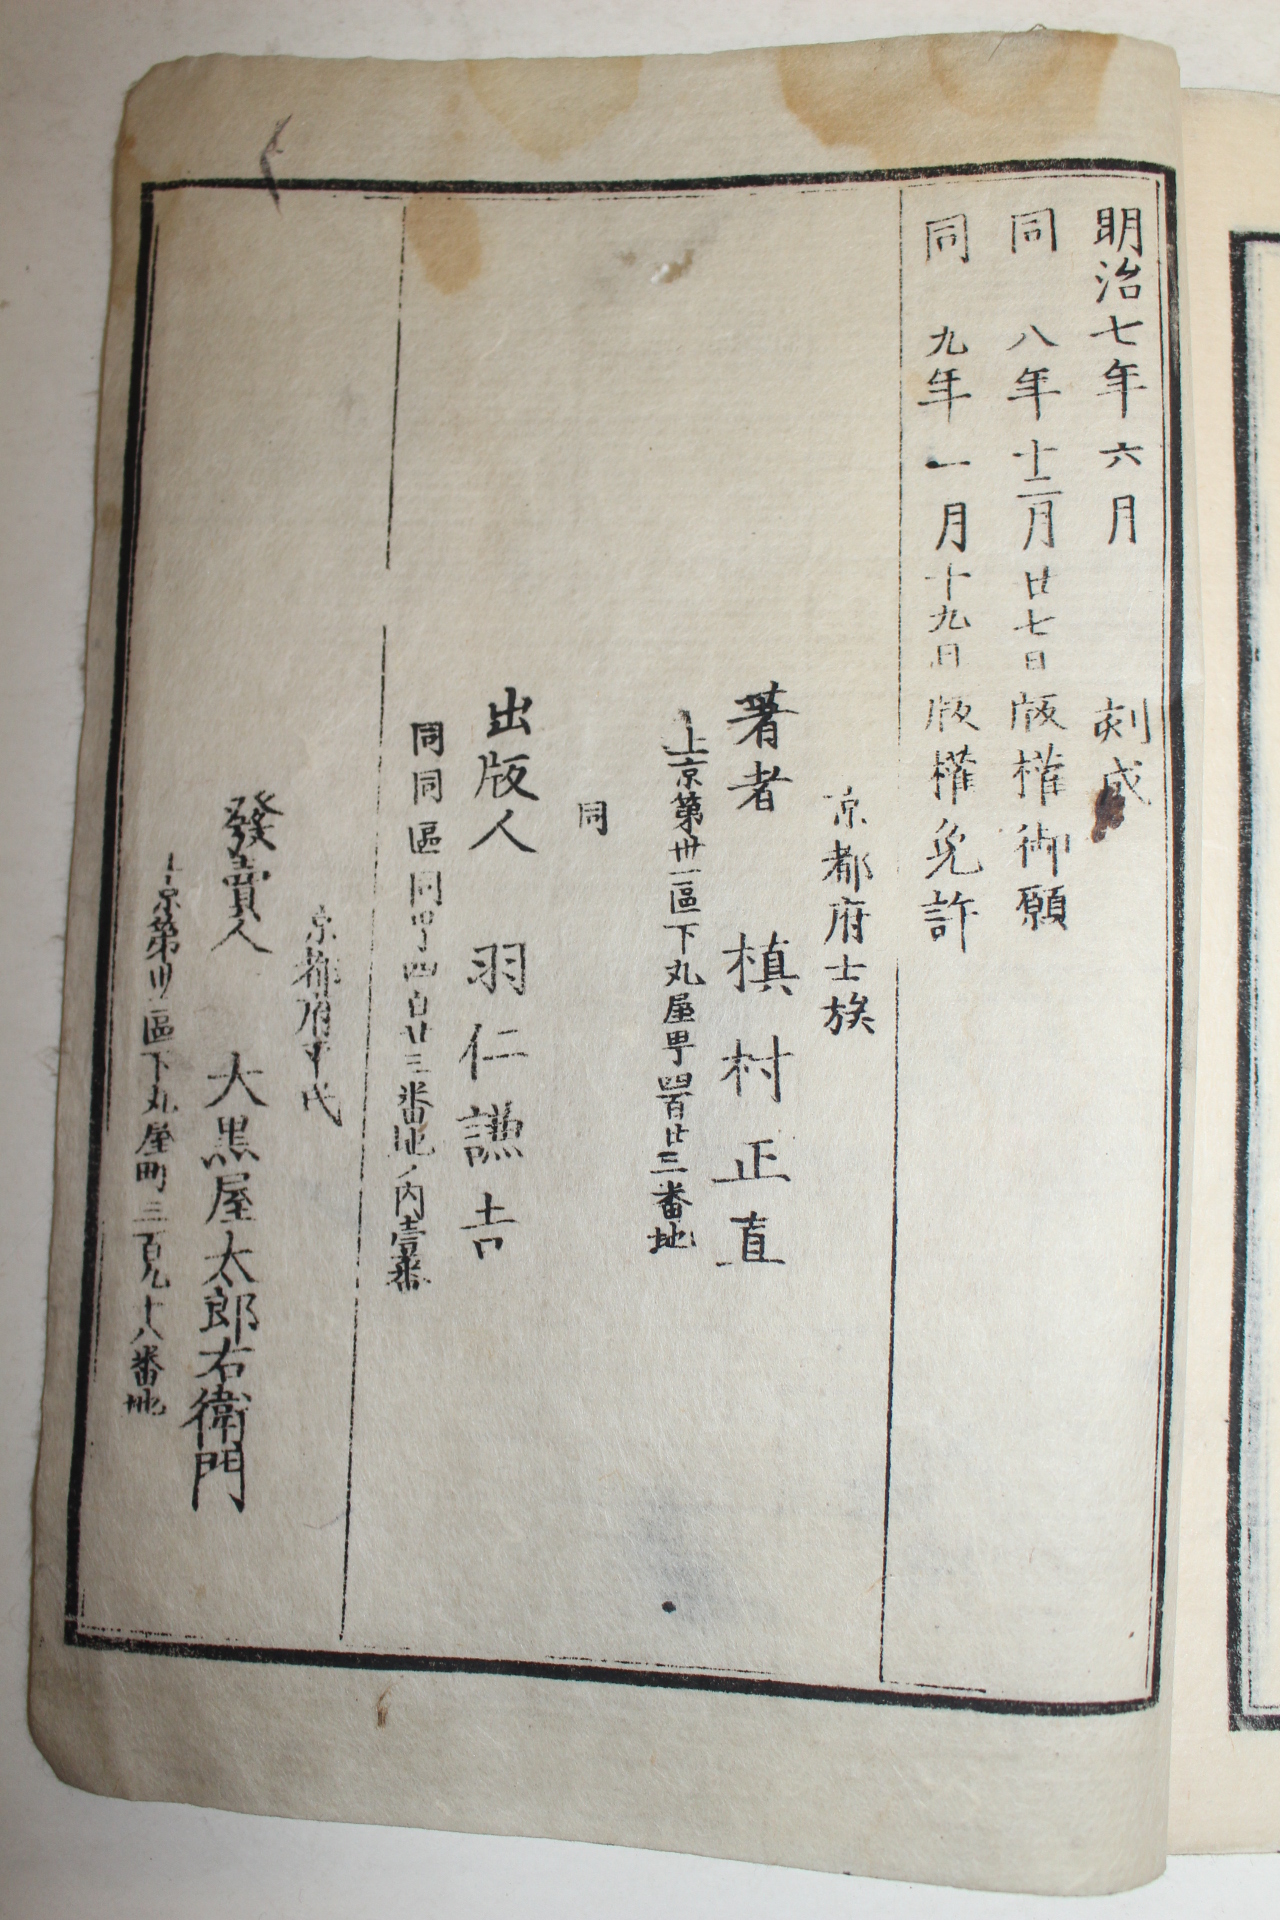 明治七年六月　刻成
同　八年十二月廿七日版權御願
同　九年一月十九日版權免許
京都府士族
著者　槙村正直
上京第卅一區下丸屋町四百廿三番地
同
出版人　羽仁謙吉
同同區同町四百廿三番地ノ内壹番
京都府平民
發賣人　大黒屋太郎右衛門
上京第卅區下丸屋町三百九十八番地